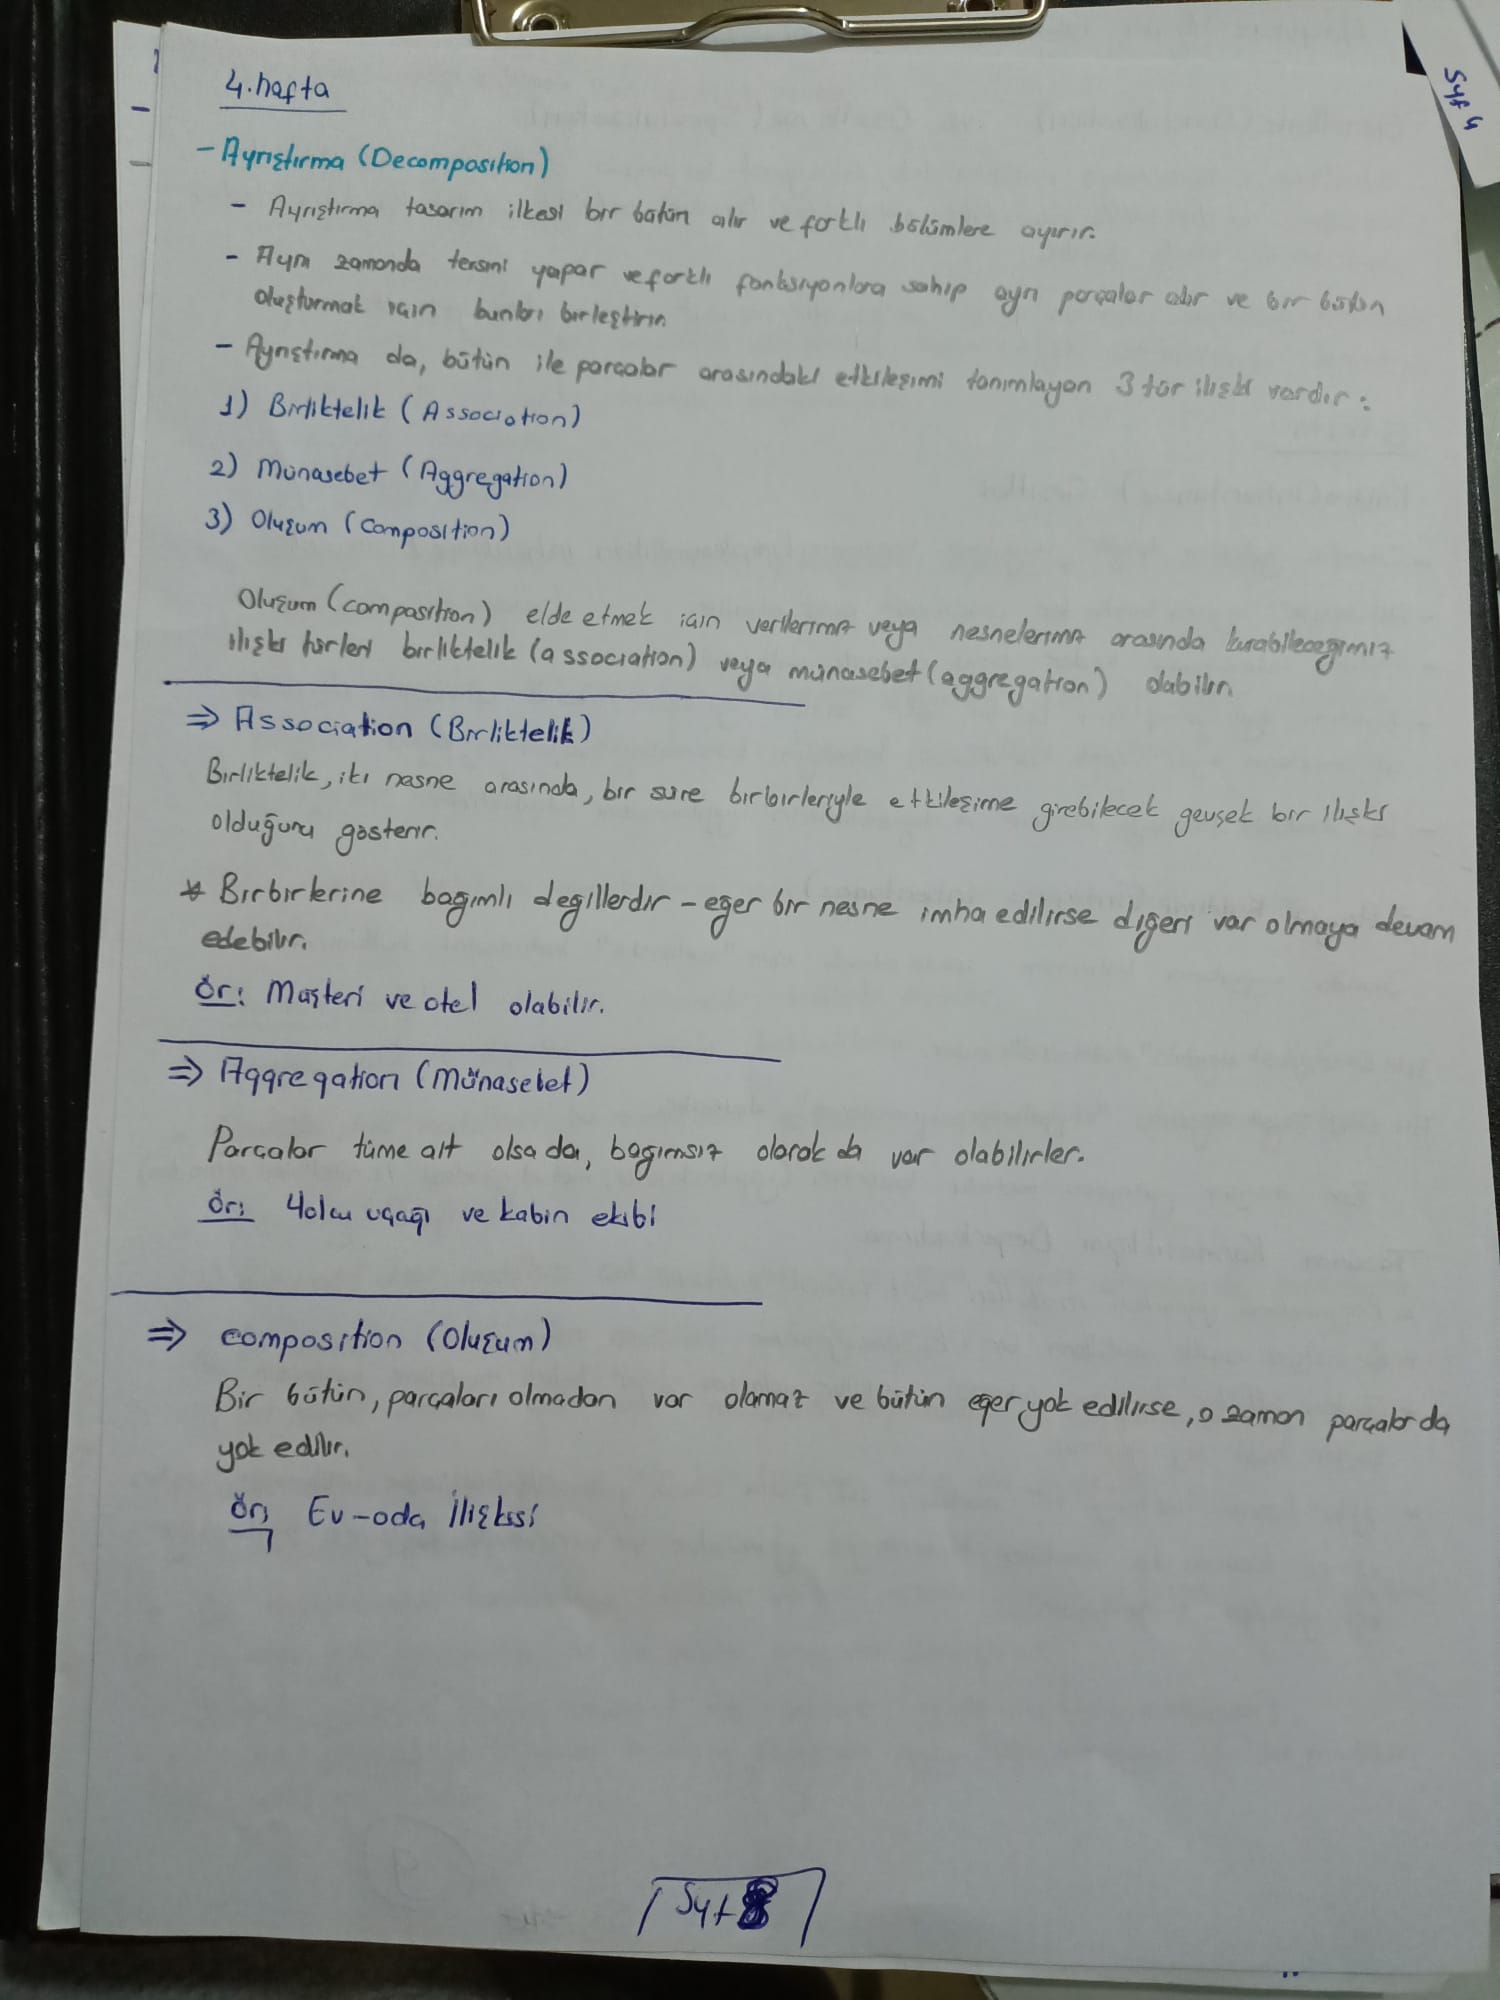 Syf 4
4.hafta
- Ayrıştırma (Decomposition)
- Ayrıştırma tasarım ilkesi bir bütün alır ve farklı bölümlere ayırır.
- Aynı zamanda tersini yapar ve farklı fonksiyonlara sahip ayrı parçalar alır ve bir bütün
oluşturmak için bunları birleştirir.
- Ayrıştırma da, bütün ile parçalar arasındaki etkileşimi tanımlayan 3 tür ilişki vardır:
1) Birliktelik (Association)
2) Münasebet (Aggregation)
3) Oluşum (Composition)
Oluşum (composition) elde etmek için verilerimiz veya nesnelerimiz arasında kurabileceğimiz
ilişki türleri birliktelik (association) veya münasebet (aggregation) olabilir.
⇒ Association (Birliktelik)
Birliktelik, iki nesne arasında, bir süre birbirleriyle etkileşime girebilecek gevşek bir ilişki
olduğunu gösterir.
* Birbirlerine bağımlı değillerdir - eğer bir nesne imha edilirse diğeri var olmaya devam
edebilir.
Ör: Müşteri ve otel olabilir.
⇒ Aggregation (Münasebet)
Parçalar tüme ait olsa da, bağımsız olarak da var olabilirler.
Ör: Yolcu uçağı ve kabin ekibi
⇒ composition (Oluşum)
Bir bütün, parçaları olmadan var olamaz ve bütün eğer yok edilirse, o zaman parçalar da
yok edilir.
Ör; Ev-oda İlişkisi
Syf 8